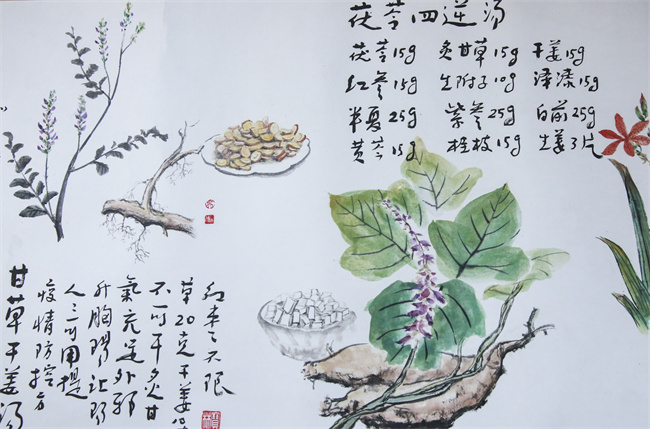 茯苓四逆汤
茯苓15g 炙甘草15g 干姜15g
红参15g 生附子10g 泽漆15g
半夏25g 紫参25g 白前25g
黄芩15g 桂枝15g 生姜3片
甘草干姜汤
疫情防控方
人人可用提
升胸陽让陽
氣充足外邪
不可干炙甘
草20克干姜
红枣不限